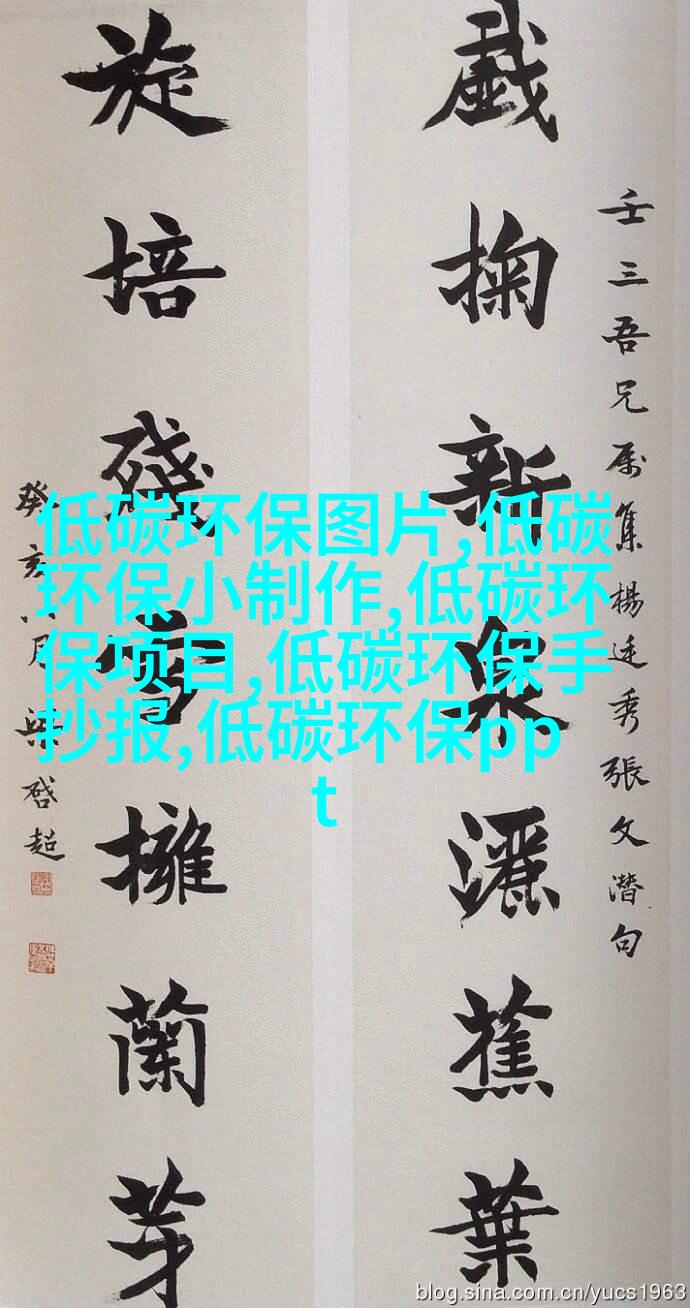 壬三吾兄属集楊廷秀張文潜句
戯掬新泉灑蕉葉
旋培殘雪擁蘭芽
癸亥八月梁啓超
低碳环保图片,低碳
环保小制作,低碳环
保项目,低碳环保手
抄报,低碳环保pp
t
blog.sina.com.cn/yucs1963